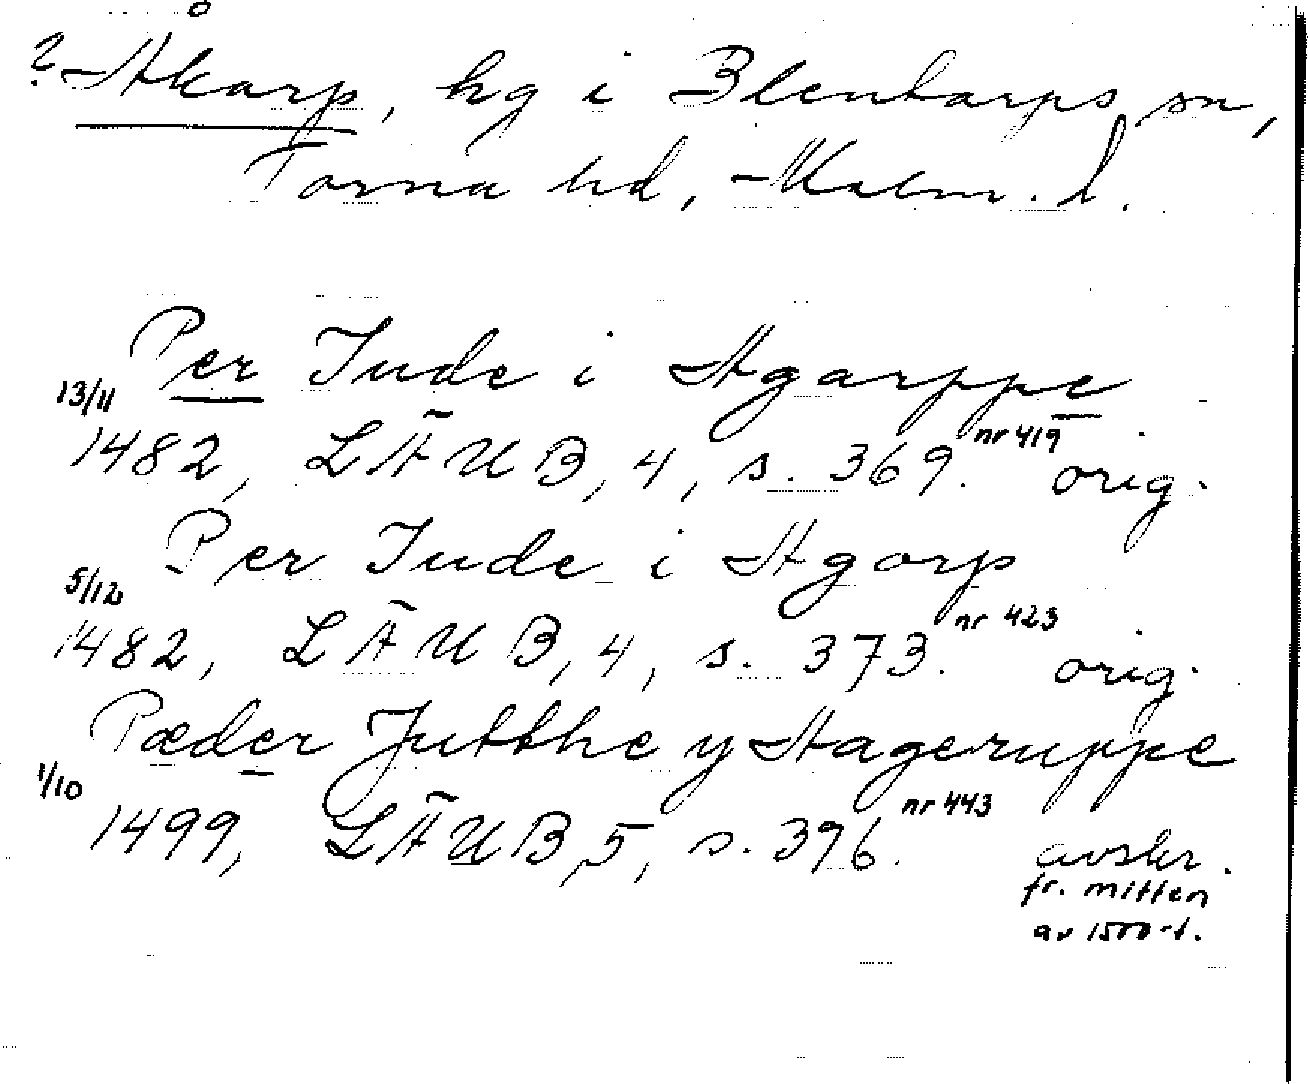 ? Åkarp, hg i Blentarps sn,
Torna hd, Malm. l.
Per Jude i Agarppe
13/11 1482, LÄUB, 4, s. 369. nr 419 orig.
Per Jude i Agorp
5/12 1482, LÄUB, 4, s. 373. nr 423 orig.
Pæder Jutthe y Aageruppe
1/10 1499, LÄUB, 5, s. 396. nr 443 avskr.
fr. mitten
av 1500-t.